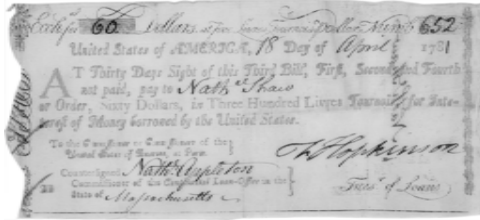 Exch.ᵉ for 60 Dollars at five Livres Tournois ℔ Dollar Numb. 652
United States of AMERICA, 18 Day of April 1781
AT Thirty Days Sight of this Third Bill, First, Second and Fourth
not paid, pay to Nathˡ Shaw
or Order, Sixty Dollars, in Three Hundred Livres Tournois, for Inte-
rest of Money borrowed by the United States.
To the Commissioner or Commissioners of the
United States of America, at Paris.
Countersigned, Nathˡ Appleton
Commissioner of the Continental Loan-Office in the
State of Massachusetts
F Hopkinson
Treasʳ of Loans